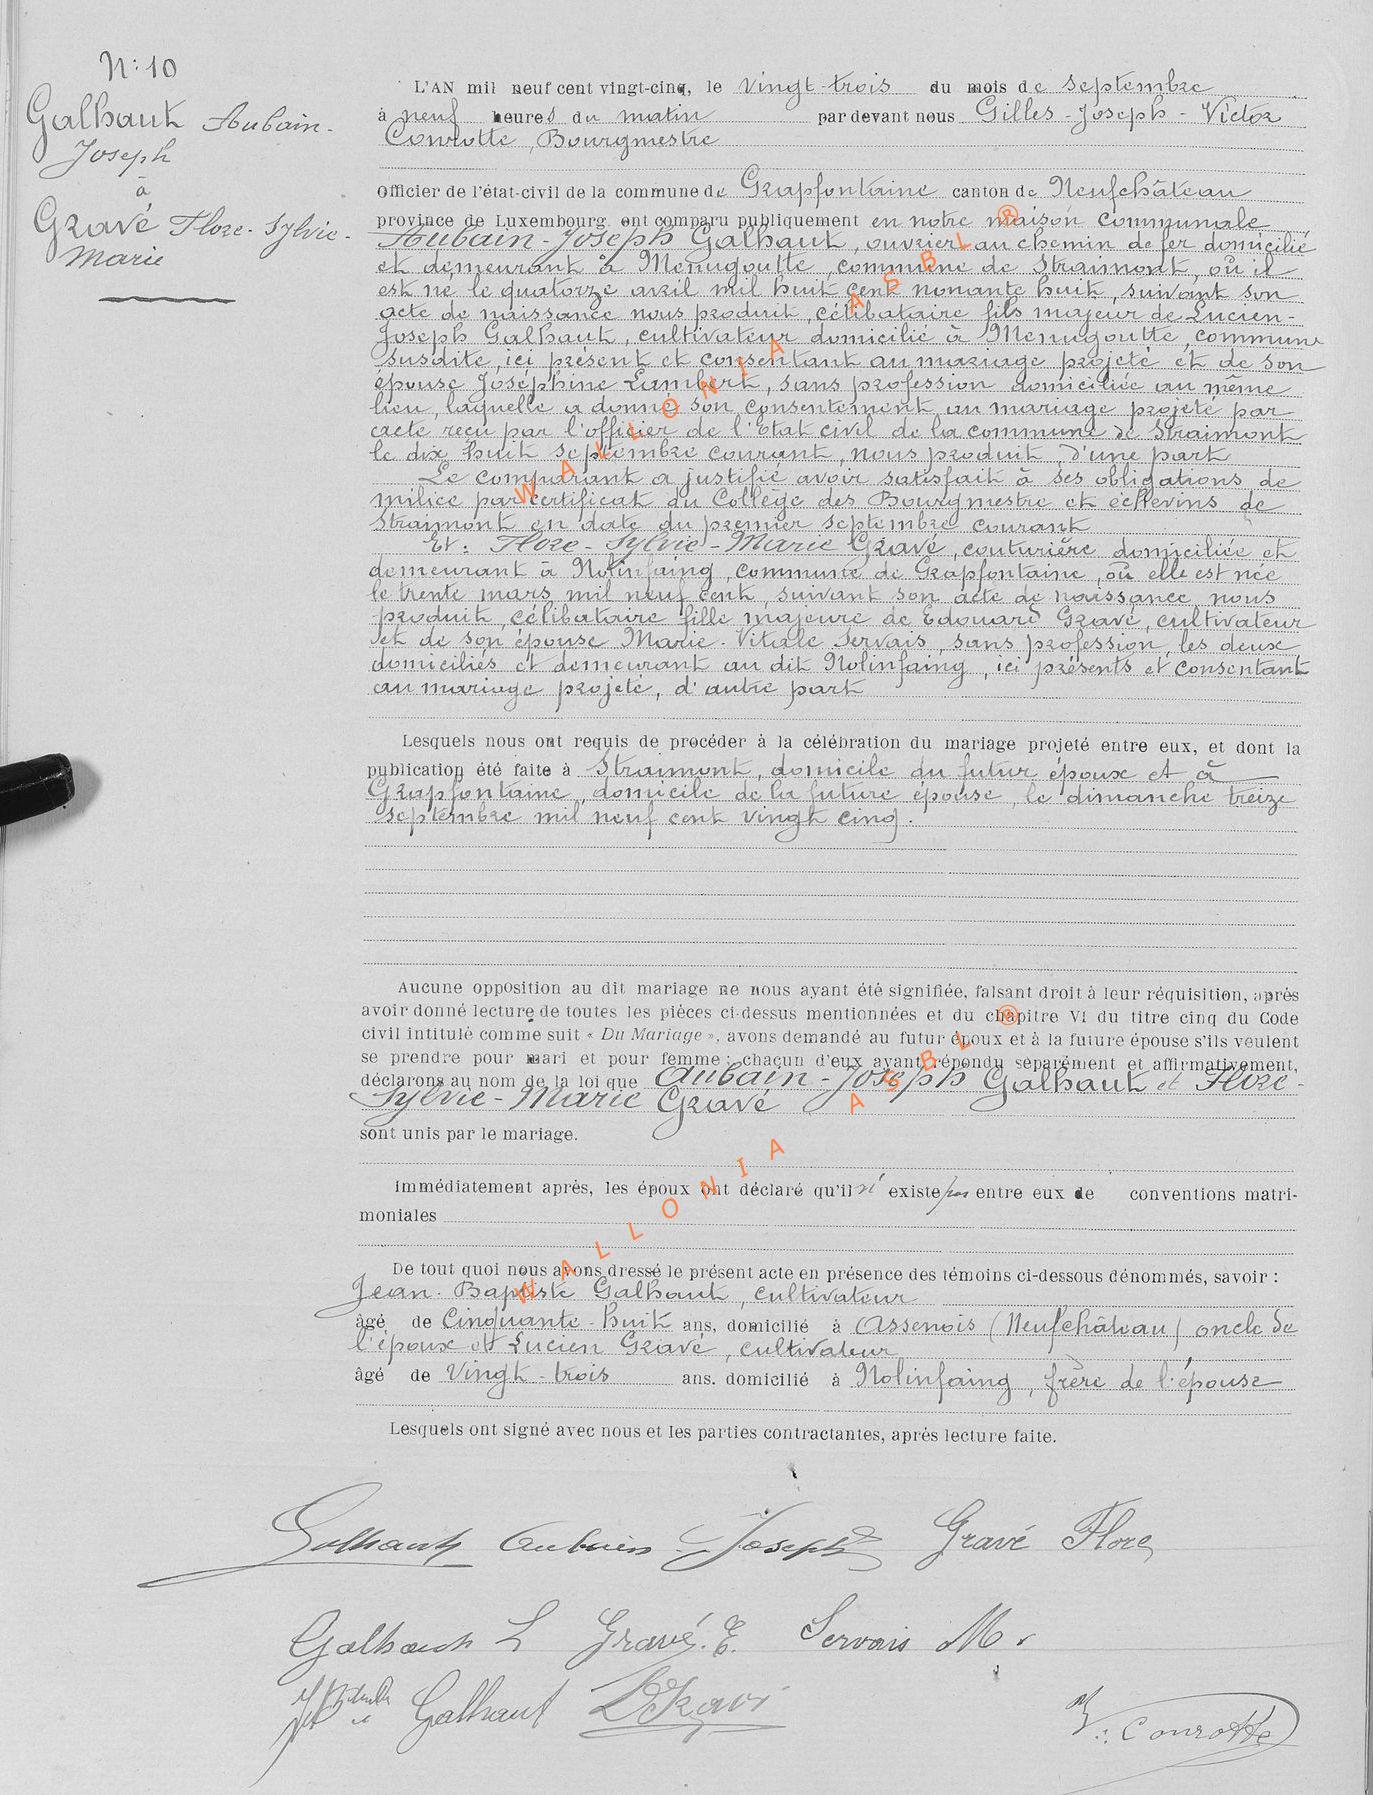 N: 10
Galhaut Aubain-
Joseph
à
Gravé Flore-Sylvie-
Marie
L'AN mil neuf cent vingt-cinq, le vingt-trois du mois de septembre
à neuf heures du matin par devant nous Gilles-Joseph-Victor
Conrotte, Bourgmestre
officier de l'état-civil de la commune de Grapfontaine canton de Neufchâteau
province de Luxembourg ont comparu publiquement en notre maison communale
Aubain-Joseph Galhaut, ouvrier au chemin de fer domicilié
et demeurant à Menugoutte, commune de Straimont, où il
est né le quatorze avril mil huit cent nonante huit, suivant son
acte de naissance nous produit, célibataire fils majeur de Lucien-
Joseph Galhaut, cultivateur domicilié à Menugoutte, commune
susdite, ici présent et consentant au mariage projeté et de son
épouse Joséphine Lambert, sans profession domiciliée au même
lieu, laquelle a donné son consentement au mariage projeté par
acte reçu par l'officier de l'Etat civil de la commune de Straimont
le dix huit septembre courant, nous produit, d'une part
Le comparant a justifié avoir satisfait à ses obligations de
milice par certificat du Collège des Bourgmestre et échevins de
Straimont en date du premier septembre courant
Et: Flore-Sylvie-Marie Gravé, couturière domiciliée et
demeurant à Nolinfaing, commune de Grapfontaine, où elle est née
le trente mars mil neuf cent, suivant son acte de naissance nous
produit, célibataire fille majeure de Edouard Gravé, cultivateur
et de son épouse Marie-Vitale Servais, sans profession, les deux
domiciliés et demeurant au dit Nolinfaing, ici présents et consentant
au mariage projeté, d'autre part
Lesquels nous ont requis de procéder à la célébration du mariage projeté entre eux, et dont la
publication été faite à Straimont, domicile du futur époux et à
Grapfontaine, domicile de la future épouse, le dimanche treize
septembre mil neuf cent vingt cinq.
Aucune opposition au dit mariage ne nous ayant été signifiée, faisant droit à leur réquisition, après
avoir donné lecture de toutes les pièces ci-dessus mentionnées et du chapitre VI du titre cinq du Code
civil intitulé comme suit « Du Mariage », avons demandé au futur époux et à la future épouse s'ils veulent
se prendre pour mari et pour femme: chacun d'eux ayant répondu séparément et affirmativement,
déclarons au nom de la loi que Aubain-Joseph Galhaut et Flore-
Sylvie-Marie Gravé
sont unis par le mariage.
Immédiatement après, les époux ont déclaré qu'il n'existe pas entre eux de conventions matri-
moniales
De tout quoi nous avons dressé le présent acte en présence des témoins ci-dessous dénommés, savoir :
Jean-Baptiste Galhaut, cultivateur
âgé de cinquante-huit ans, domicilié à Assenois (Neufchâteau) oncle de
l'époux et Lucien Gravé, cultivateur
âgé de vingt-trois ans. domicilié à Nolinfaing, frère de l'épouse
Lesquels ont signé avec nous et les parties contractantes, après lecture faite.
Galhaut Aubain Joseph Gravé Flore
Galhaut L Gravé. E. Servais M.
Galhaut L Gravé
V. Conrotte
WALLONIA ASBL ®
WALLONIA ASBL ®